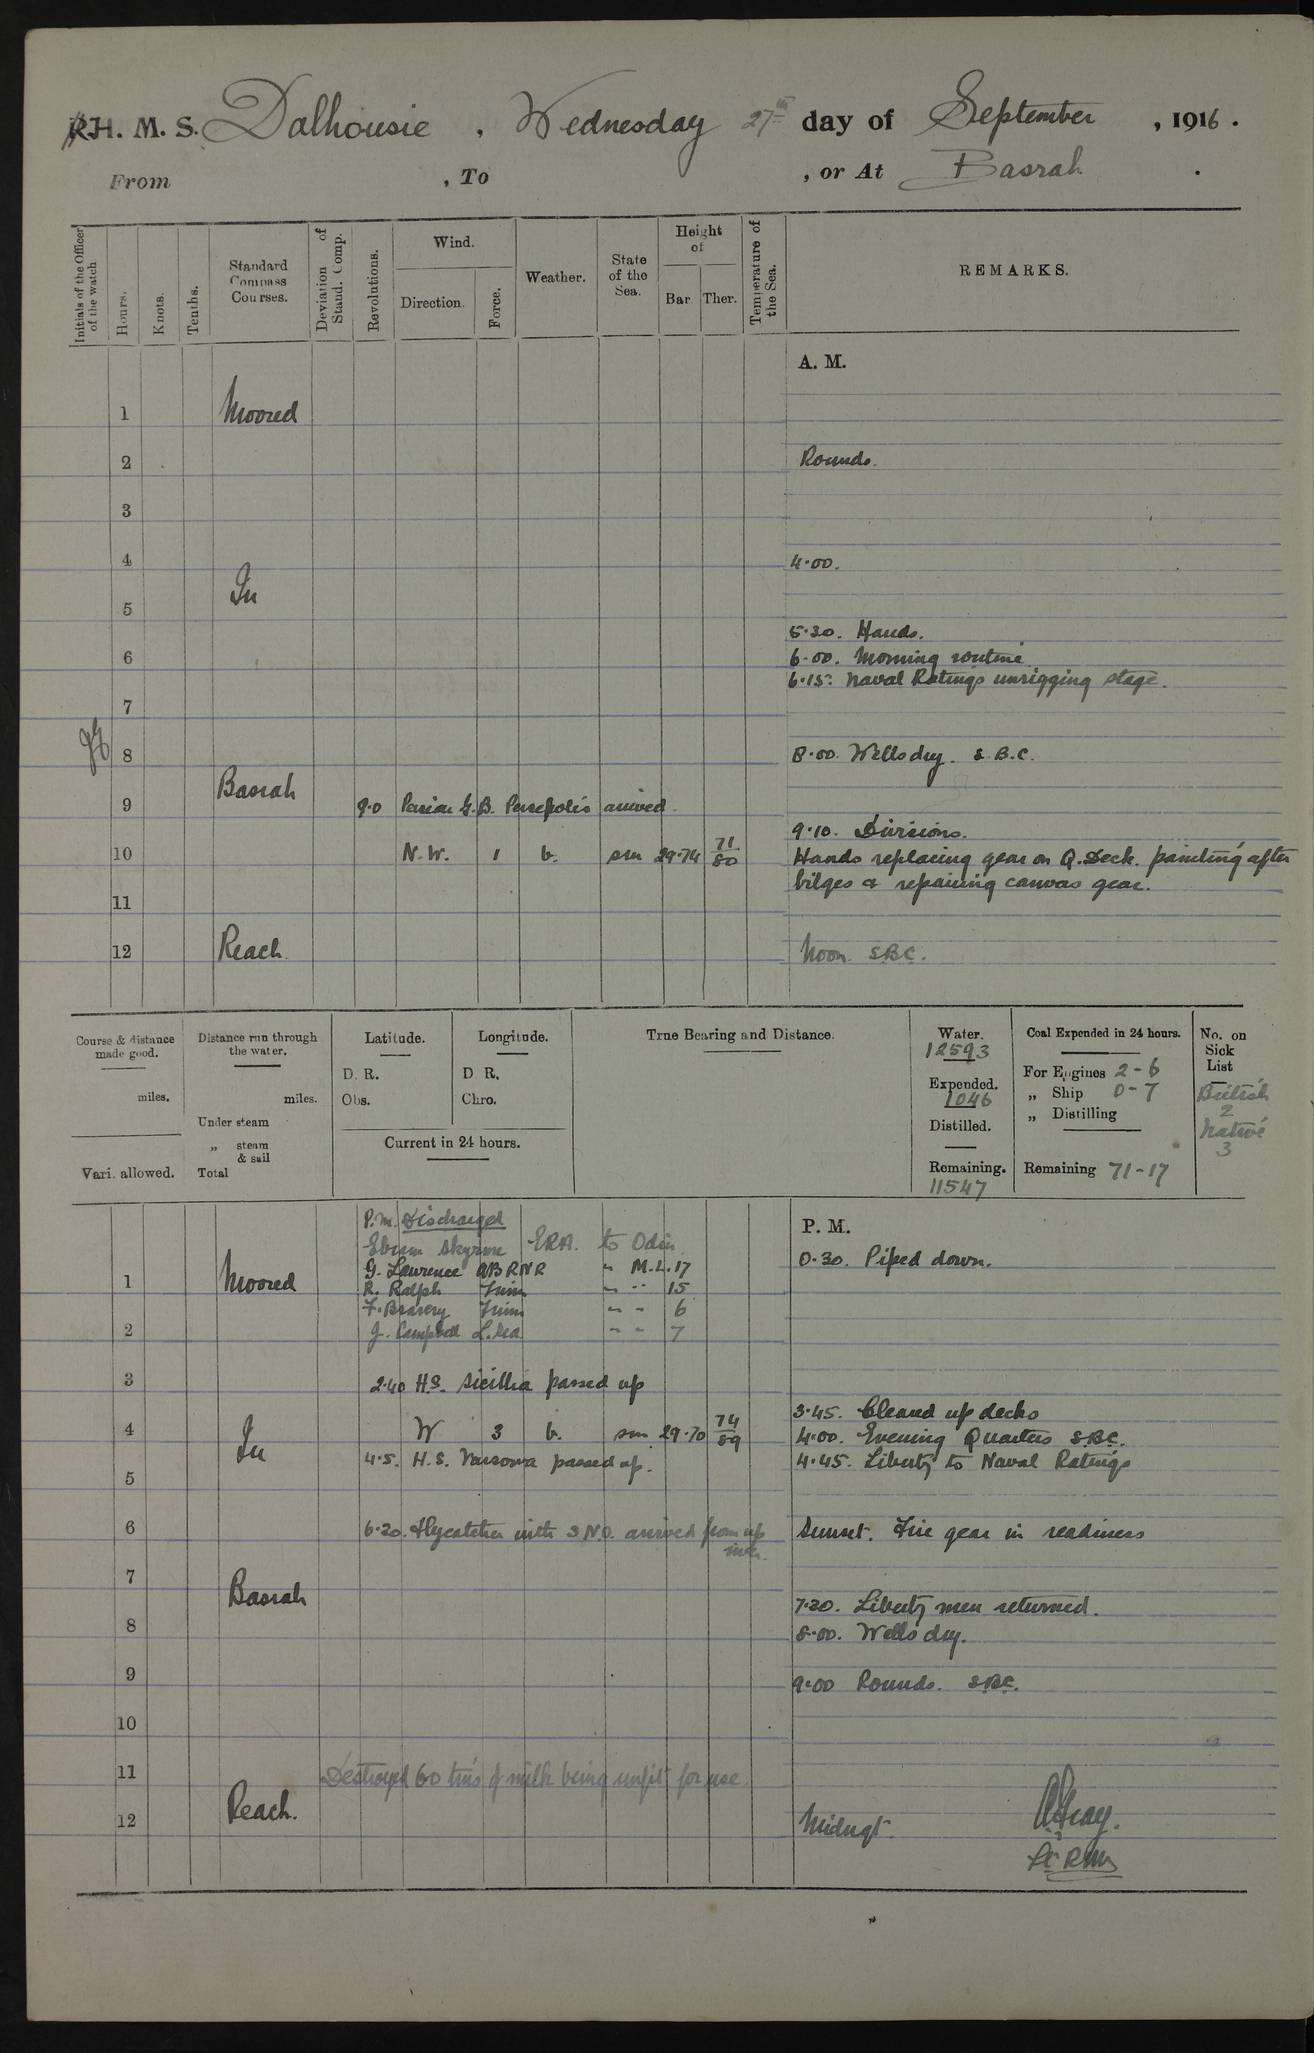 R.H. M. S. Dalhousie , Wednesday 27th day of September , 1916 .
From , To , or At Basrah .
Initials of the Officer of the watch
Hours.
Knots.
Tenths.
Standard Compass Courses.
Deviation of Stand. Comp.
Revolutions.
Wind.
Direction.
Force.
Weather.
State of the Sea.
Height of
Bar. Ther.
Temperature of the Sea.
REMARKS.
A. M.
1 Moored
2 Rounds.
3
4 4.00.
In
5
5.30. Hands.
6 6.00. Morning routine
6.15. Naval Ratings unrigging stage.
7
8 8.00. Wells dry. S.B.C.
Basrah
9 9.0 Persian G.B. Persepolis arrived.
9.10. Divisions.
10 N.W. 1 b. sm 29.74 71/80 Hands replacing gear on Q. Deck. painting after
bilges & repairing canvas gear.
11
12 Reach. Noon. S.B.C.
Course & distance made good.
miles.
Vari. allowed.
Distance run through the water.
miles.
Under steam
„ steam & sail
Total
Latitude.
D. R.
Obs.
Longitude.
D. R.
Chro.
Current in 24 hours.
True Bearing and Distance.
Water.
12593
Expended.
1046
Distilled.
Remaining.
11547
Coal Expended in 24 hours.
For Engines 2-6
„ Ship 0-7
„ Distilling
Remaining 71-17
No. on Sick List
British
2
Native
3
P.M. Discharged
P. M.
Skyrme ERA. to Odin
0.30. Piped down.
G. Lawrence AB RNR " M.L. 17
1 Moored
R. Ralph " " 15
F. Bravery " " 6
2 J. Campbell L. Sea " " 7
3 2.40 H.S. Sicillia passed up
3.45. Cleared up decks
4 W 3 b. sm 29.70 74/89 4.00. Evening Quarters S.B.C.
In
4.5. H.S. Varsova passed up. 4.45. Liberty to Naval Ratings
5
6 6.20. Flycatcher with S.N.O. arrived from up river. Sunset. Fire gear in readiness
7
Basrah
7.30. Liberty men returned.
8 8.00. Wells dry.
9 9.00 Rounds. S.B.C.
10
11 Destroyed 60 tins of milk being unfit for use.
Reach.
12 Midngt.